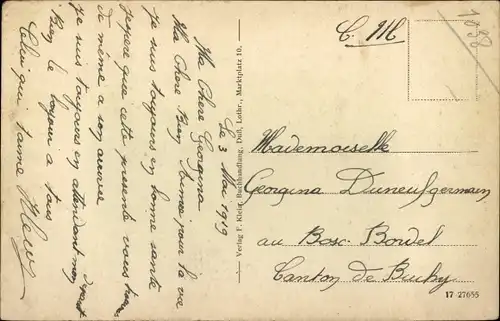 Le 3 Mai 1919
Ma Chere Georgina
Ma Chere Bien Aimée pour la vie
Je suis toujours en bonne santé
J'espère que cette présente vous trouve
de même a son arrivée
Je suis toujours en attendant mon
départ
Bien le bonjour a tous
Celui qui t'aime Henry
Verlag F. Kleig, Buchhandlung, Dud. Lothr., Marktplatz 10.
C. M
1038
Mademoiselle
Georgina Duneufgermain
au Bosc-Bordel
Canton de Buchy
17-27655